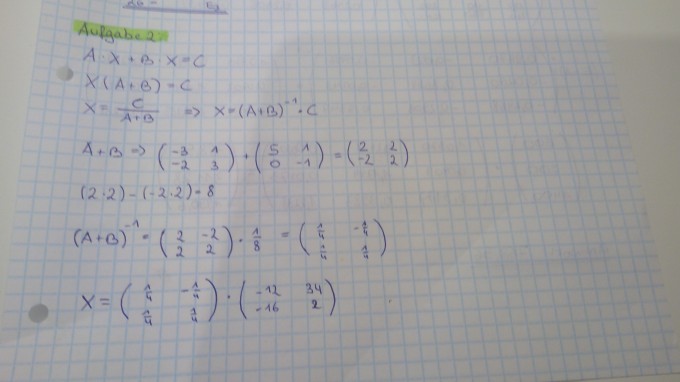 Aufgabe 2:
A · X + B · X = C
X (A+B) = C
X = C/(A+B) => X = (A+B)^-1 · C
A+B => (-3 1; -2 3) + (5 1; 0 -1) = (2 2; -2 2)
(2·2) - (-2·2) = 8
(A+B)^-1 = (2 -2; 2 2) · 1/8 = (1/4 -1/4; 1/4 1/4)
X = (1/4 -1/4; 1/4 1/4) · (-12 34; -16 2)